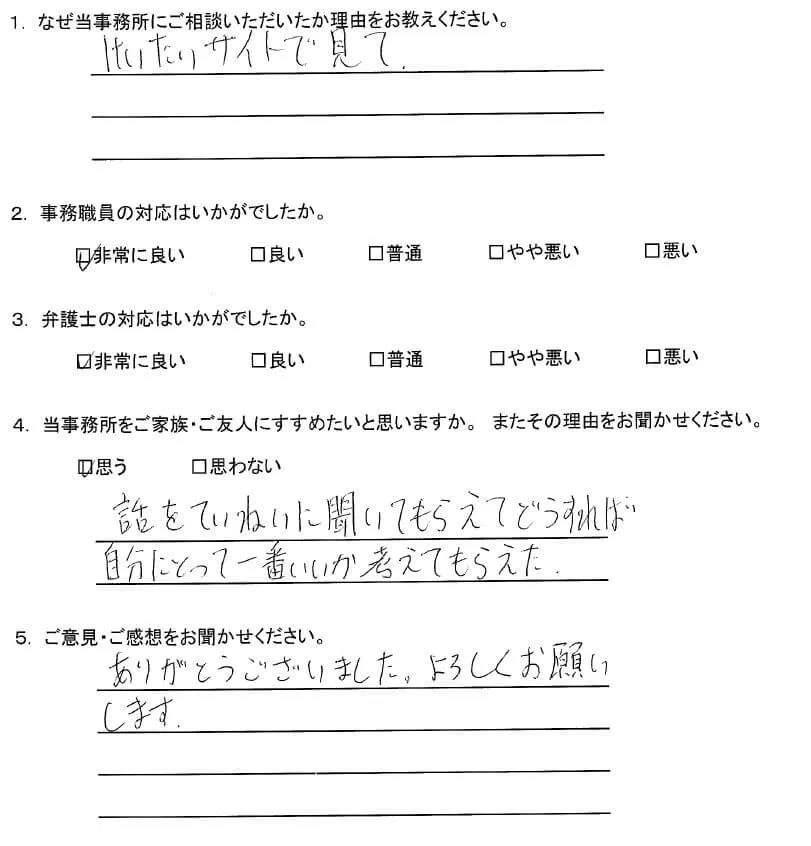 1. なぜ当事務所にご相談いただいたか理由をお教えください。
けいたいサイトで見て.
2. 事務職員の対応はいかがでしたか。
☑非常に良い □良い □普通 □やや悪い □悪い
3. 弁護士の対応はいかがでしたか。
☑非常に良い □良い □普通 □やや悪い □悪い
4. 当事務所をご家族・ご友人にすすめたいと思いますか。 またその理由をお聞かせください。
☑思う □思わない
話をていねいに聞いてもらえてどうすれば
自分にとって一番いいか考えてもらえた.
5. ご意見・ご感想をお聞かせください。
ありがとうございました。よろしくお願い
します.